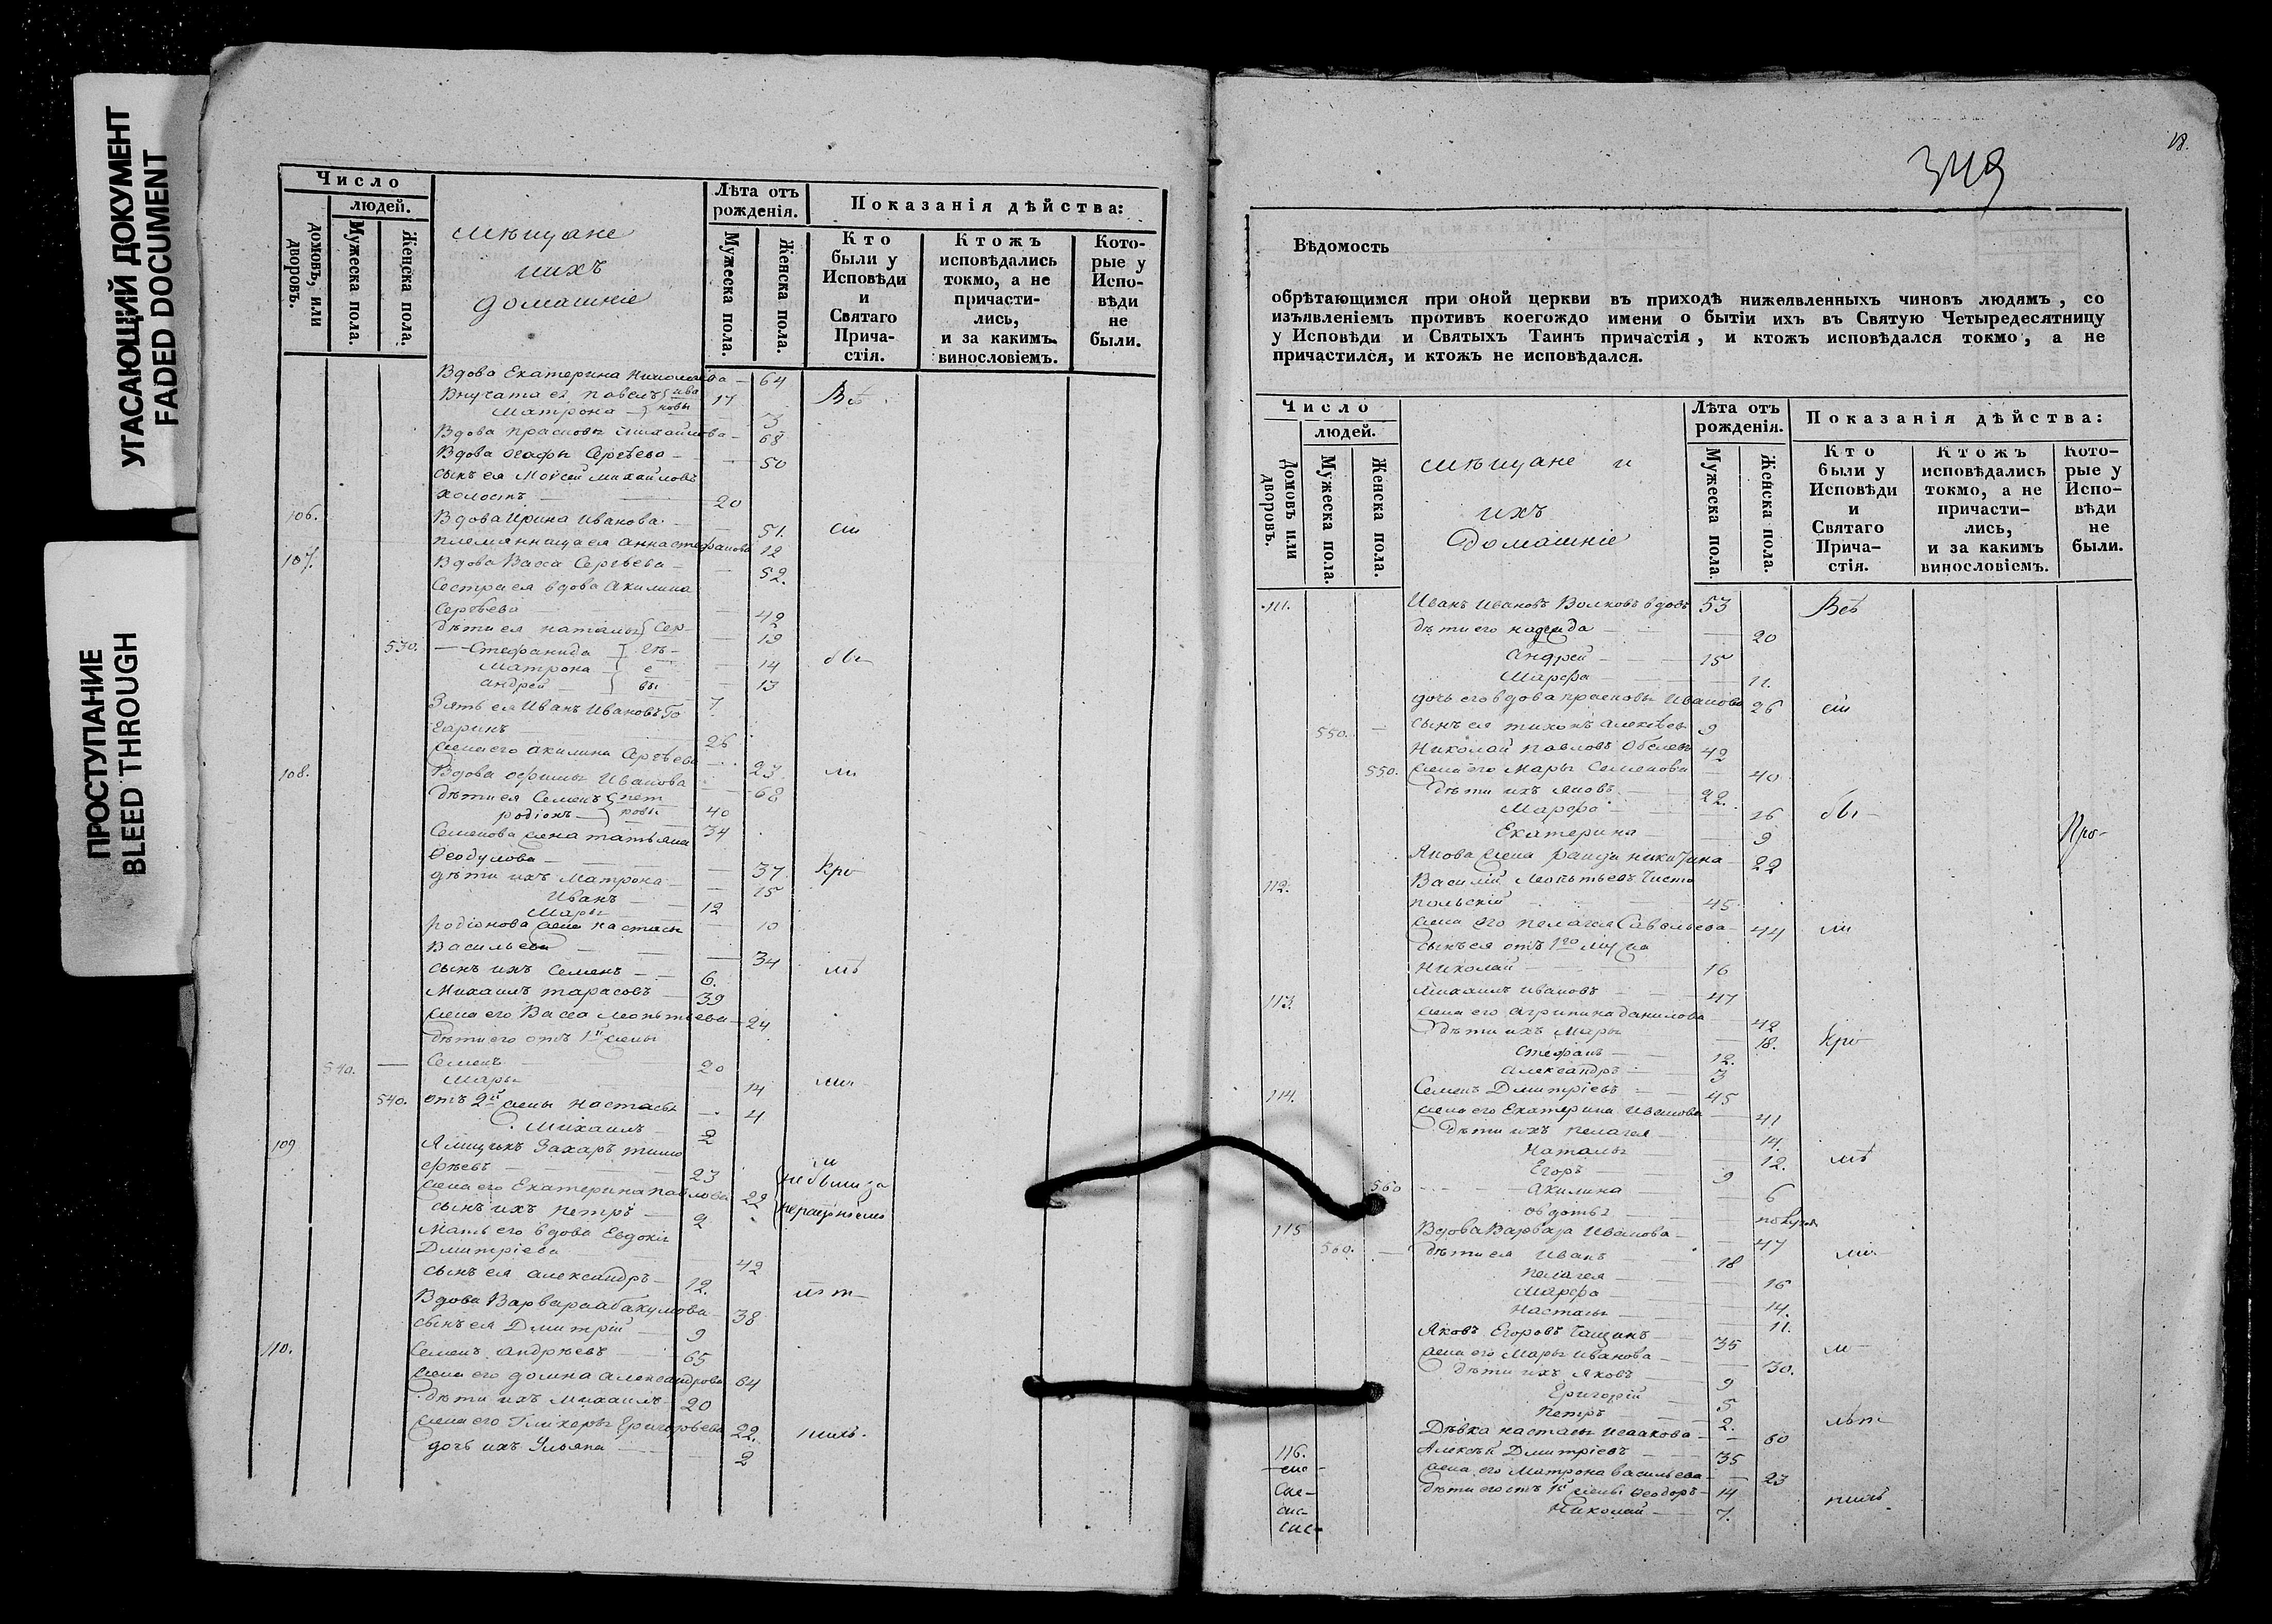 УГАСАЮЩИЙ ДОКУМЕНТ
FADED DOCUMENT
ПРОСТУПАНИЕ
BLEED THROUGH
Число
людей.
домовъ, или дворовъ.
Мужеска пола.
Женска пола.
мѣщане
ихъ
домашніе
Лѣта отъ рожденія.
Мужеска пола.
Женска пола.
Показанія дѣйства:
Кто были у Исповѣди и Святаго Прича-стія.
Ктожъ исповѣдались токмо, а не причасти-лись, и за какимъ винословіемъ.
Кото-рые у Испо-вѣди не были.
Вдова Екатерина Николаева — 64 Всѣ
Внучата ея Павелъ ива 17
Матрона новы 3
Вдова Прасковья Михайлова — 68
Вдова Агафья Сергѣева — 50
сынъ ея Мойсей Михайловъ
холостъ 20
106. Вдова Ирина Иванова — 51. сіи
племянница ея Анна Стефанова 12
107. Вдова Васса Сергѣева — 52.
Сестра ея вдова Акилина
Сергѣева 42
дѣти ея Наталья Сер- 19
530. Стефанида гѣ- 14 бы-
Матрона е 13
Андрей вы 7
Зять ея Иванъ Ивановъ Го
гаринъ 26
жена его Акилина Сергѣева 23
108. Вдова Офимья Иванова 68 ли
дѣти ея Семенъ пет 40
родіонъ ровы 34
Семенова жена Татьяна
Ѳеодулова 37 Кро-
дѣти ихъ Матрона 15
Иванъ 12
Марья 10
Родіонова жена Настасья
Васильева 34
сынъ ихъ Семенъ 6. мѣ
Михаилъ Тарасовъ 39
жена его Васса Меѳтьева 24
дѣти его отъ 1й жены
540. — Семенъ 20
Марья 14
540. отъ 2й жены Настасья 4
Михаилъ 2
109 Ямщикъ Захаръ Тимо
фѣевъ 23 не были за
жена его Екатерина Павлова 22 нерадѣніемъ
сынъ ихъ Петръ 2
Мать его вдова Евдокія
Дмитріева 42
сынъ ея Александръ 12.
Вдова Варвара Абакумова 38
сынъ ея Дмитрій 9
110. Семенъ Андрѣевъ 65
жена его Домна Александрова 64
дѣти ихъ Михаилъ 20
жена его Гликерья Григорьева 22.
дочь ихъ Ульяна 2
349
18.
Вѣдомость
обрѣтающимся при оной церкви въ приходѣ нижеявленныхъ чиновъ людямъ, со
изъявленіемъ противъ коегождо имени о бытіи ихъ въ Святую Четыредесятницу
у Исповѣди и Святыхъ Таинъ причастія, и ктожъ исповѣдался токмо, а не
причастился, и ктожъ не исповѣдался.
Число
людей.
Домовъ или дворовъ.
Мужеска пола.
Женска пола.
мѣщане и
ихъ
домашніе
Лѣта отъ рожденія.
Мужеска пола.
Женска пола.
Показанія дѣйства:
Кто были у Исповѣди и Святаго Прича-стія.
Ктожъ исповѣдались токмо, а не причасти-лись, и за какимъ винословіемъ.
Кото-рые у Испо-вѣди не были.
111. Иванъ Ивановъ Волковъ вдовъ 53 Всѣ
дѣти его Надежда 20
Андрей 15
Марфа 11.
дочь его вдова Прасковья Иванова 26 сіи
550. — сынъ ея Тихонъ Алексѣевъ 9
Николай Павловъ 42
550. жена его Марья Семенова 40
дѣти ихъ Яковъ 22.
Марфа 16 бы-
Екатерина 9 Про-
Якова жена Никитина 22
112. Василій Меѳтьевъ Чисто
польскій 45.
жена его Пелагея Савельева 44 ли
сынъ ея отъ 1го мужа
Николай 16
113. Михаилъ Ивановъ 47
жена его Агрипина Данилова 42
дѣти ихъ Марья 18. Кро-
Стефанъ 12.
Александръ 3
114. Семенъ Дмитріевъ 45
жена его Екатерина Иванова 41
дѣти ихъ Пелагея 14.
Наталья 12. мѣ
Егоръ 9
560 Акилина 6
Овдотья
115 Вдова Варвара Иванова 47
560. — дѣти ея Иванъ 18
Пелагея 16
Марфа 14.
Настасья 11.
Яковъ Егоровъ Гащинъ 35
жена его Марья Иванова 30.
дѣти ихъ Яковъ 9
Григорій 5
Петръ 2.
Дѣвка Настасья Исаакова 60 лѣт
116. Алексѣй Дмитріевъ 35
жена его Матрона Васильева 23
дѣти его отъ 1й жены Ѳеодоръ 14
Николай 7.